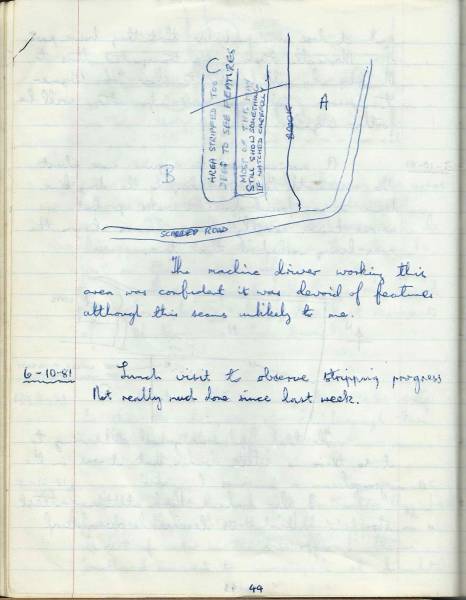 C
A
B
AREA STRIPPED TOO
DEEP TO SEE FEATURES
MOST OF THIS MAY
STILL SHOW SOMETHING
IF WATCHED CAREFULLY
BROOK
SCRAPED ROAD
The machine driver working this
area was confident it was devoid of features
although this seems unlikely to me.
6-10-81 Lunch visit to observe stripping progress
Not really much done since last week.
44